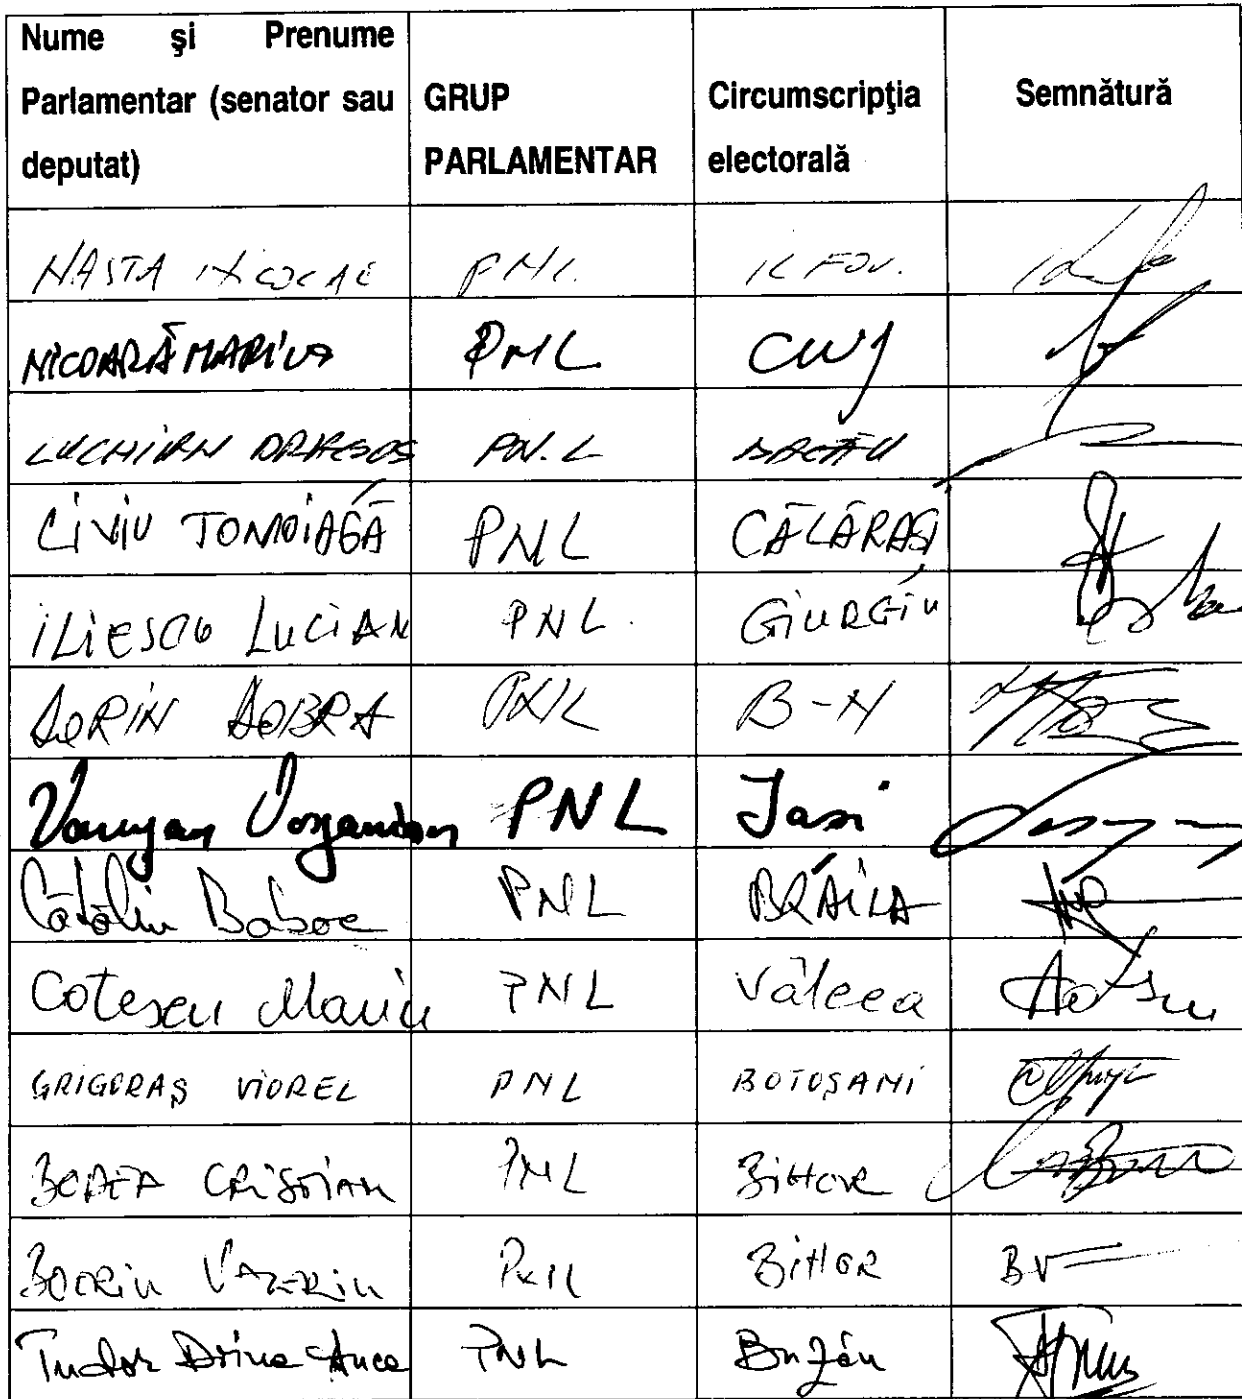 Nume și Prenume
Parlamentar (senator sau
deputat)
GRUP
PARLAMENTAR
Circumscripţia
electorală
Semnătură
NASTA NICOLAE PNL. ILFOV.
NICOARĂ MARIUS PNL CLUJ
LUCHIAN DRAGOS PN.L BACĂU
LIVIU TOMOIAGĂ PNL CĂLĂRAȘI
ILIESCU LUCIAN PNL. GIURGIU
DORIN DOBRA PNL B-N
Varujan Vosganian PNL Iasi
Cătălin Boboc PNL BRĂILA
Cotescu Marin PNL Vâlcea
GRIGORAȘ VIOREL PNL BOTOȘANI
BODEA CRISTIAN PNL BIHOR
BOERIU VALERIU PNL BIHOR
Tudor Doina Anca PNL Buzău